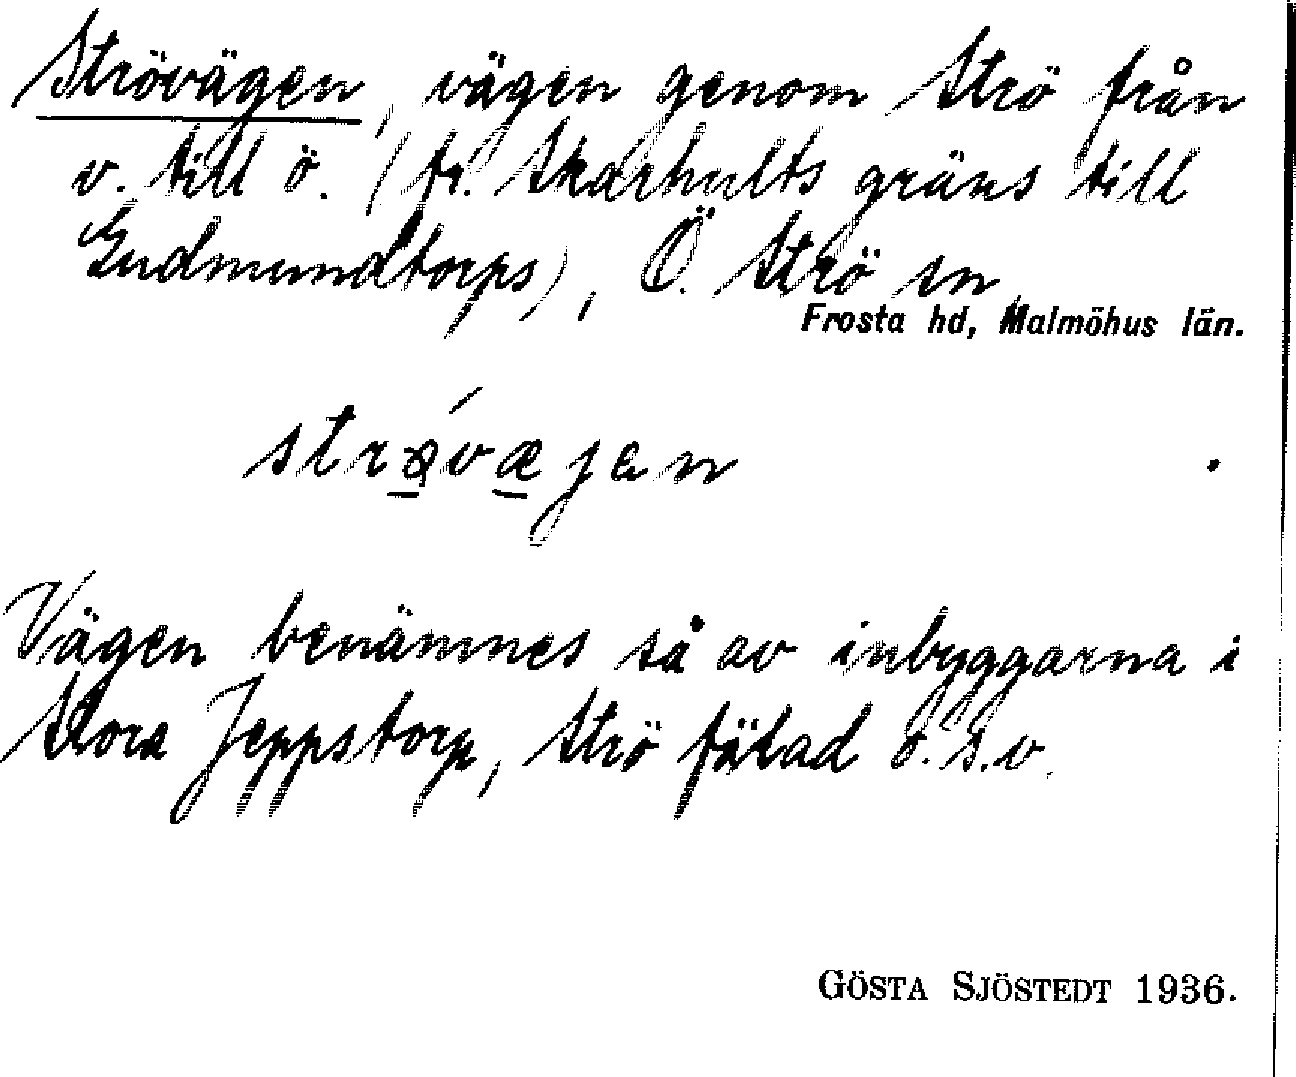 Strövägen, vägen genom Strö från
v. till ö. (fr. Skarhults gräns till
Gudmundtorps), Ö. Strö sn
Frosta hd, Malmöhus län.
strøvæjen
Vägen benämnes så av inbyggarna i
Stora Jeppstorp, Strö fälad o.s.v.
GÖSTA SJÖSTEDT 1936.